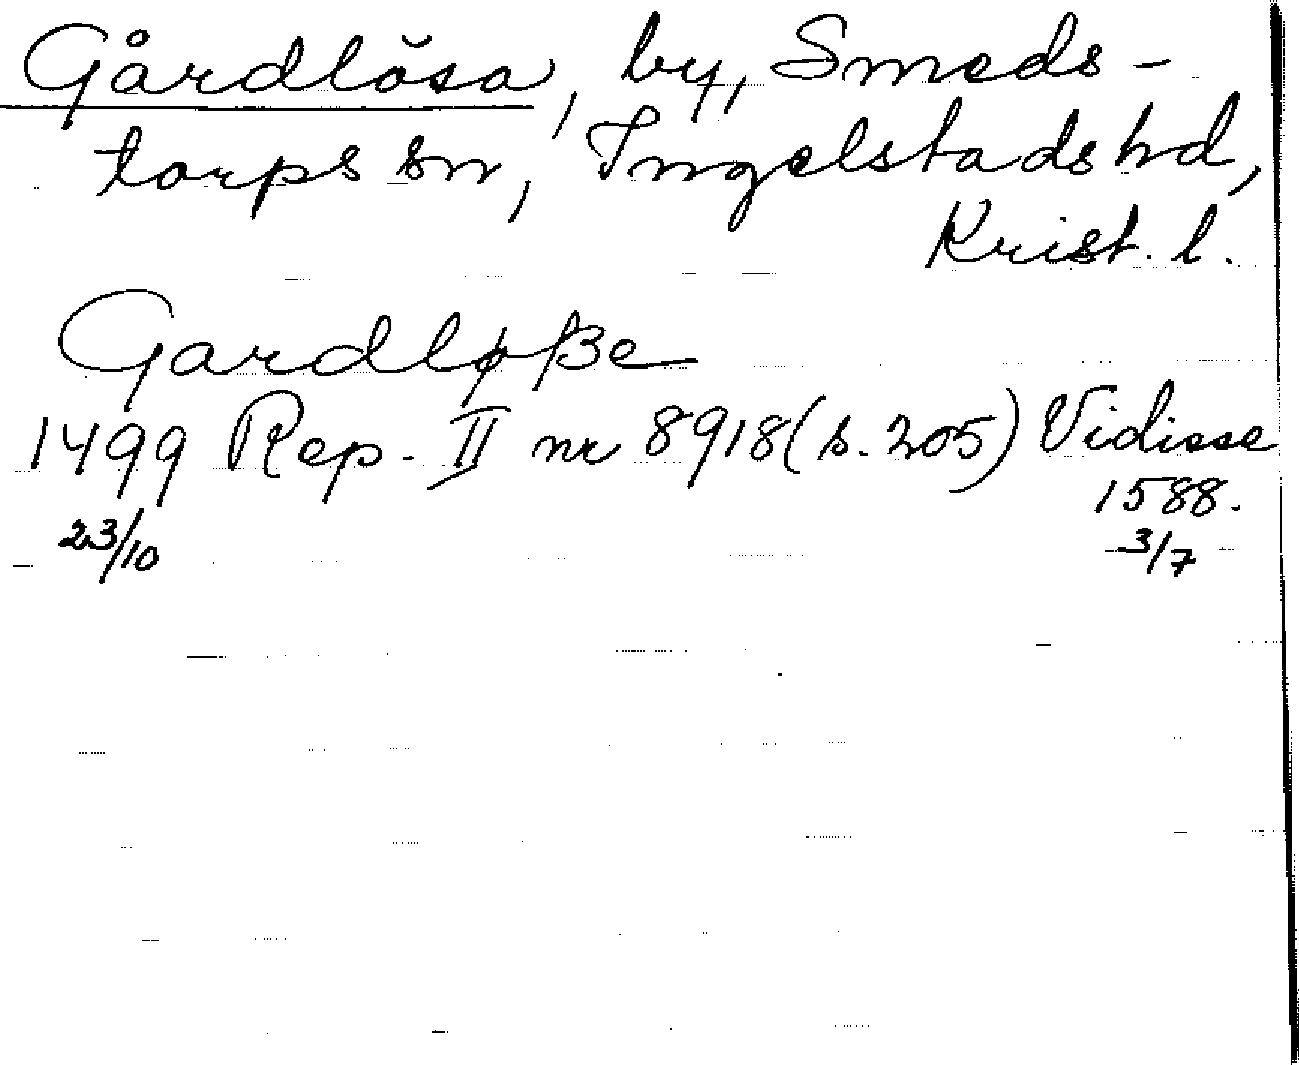 Gårdlösa, by, Smeds-
torps sn, Ingelstads hd,
Krist. l.
Gardløße
1499 Rep. II nr 8918 (s. 205) Vidisse
1588.
23/10 3/7